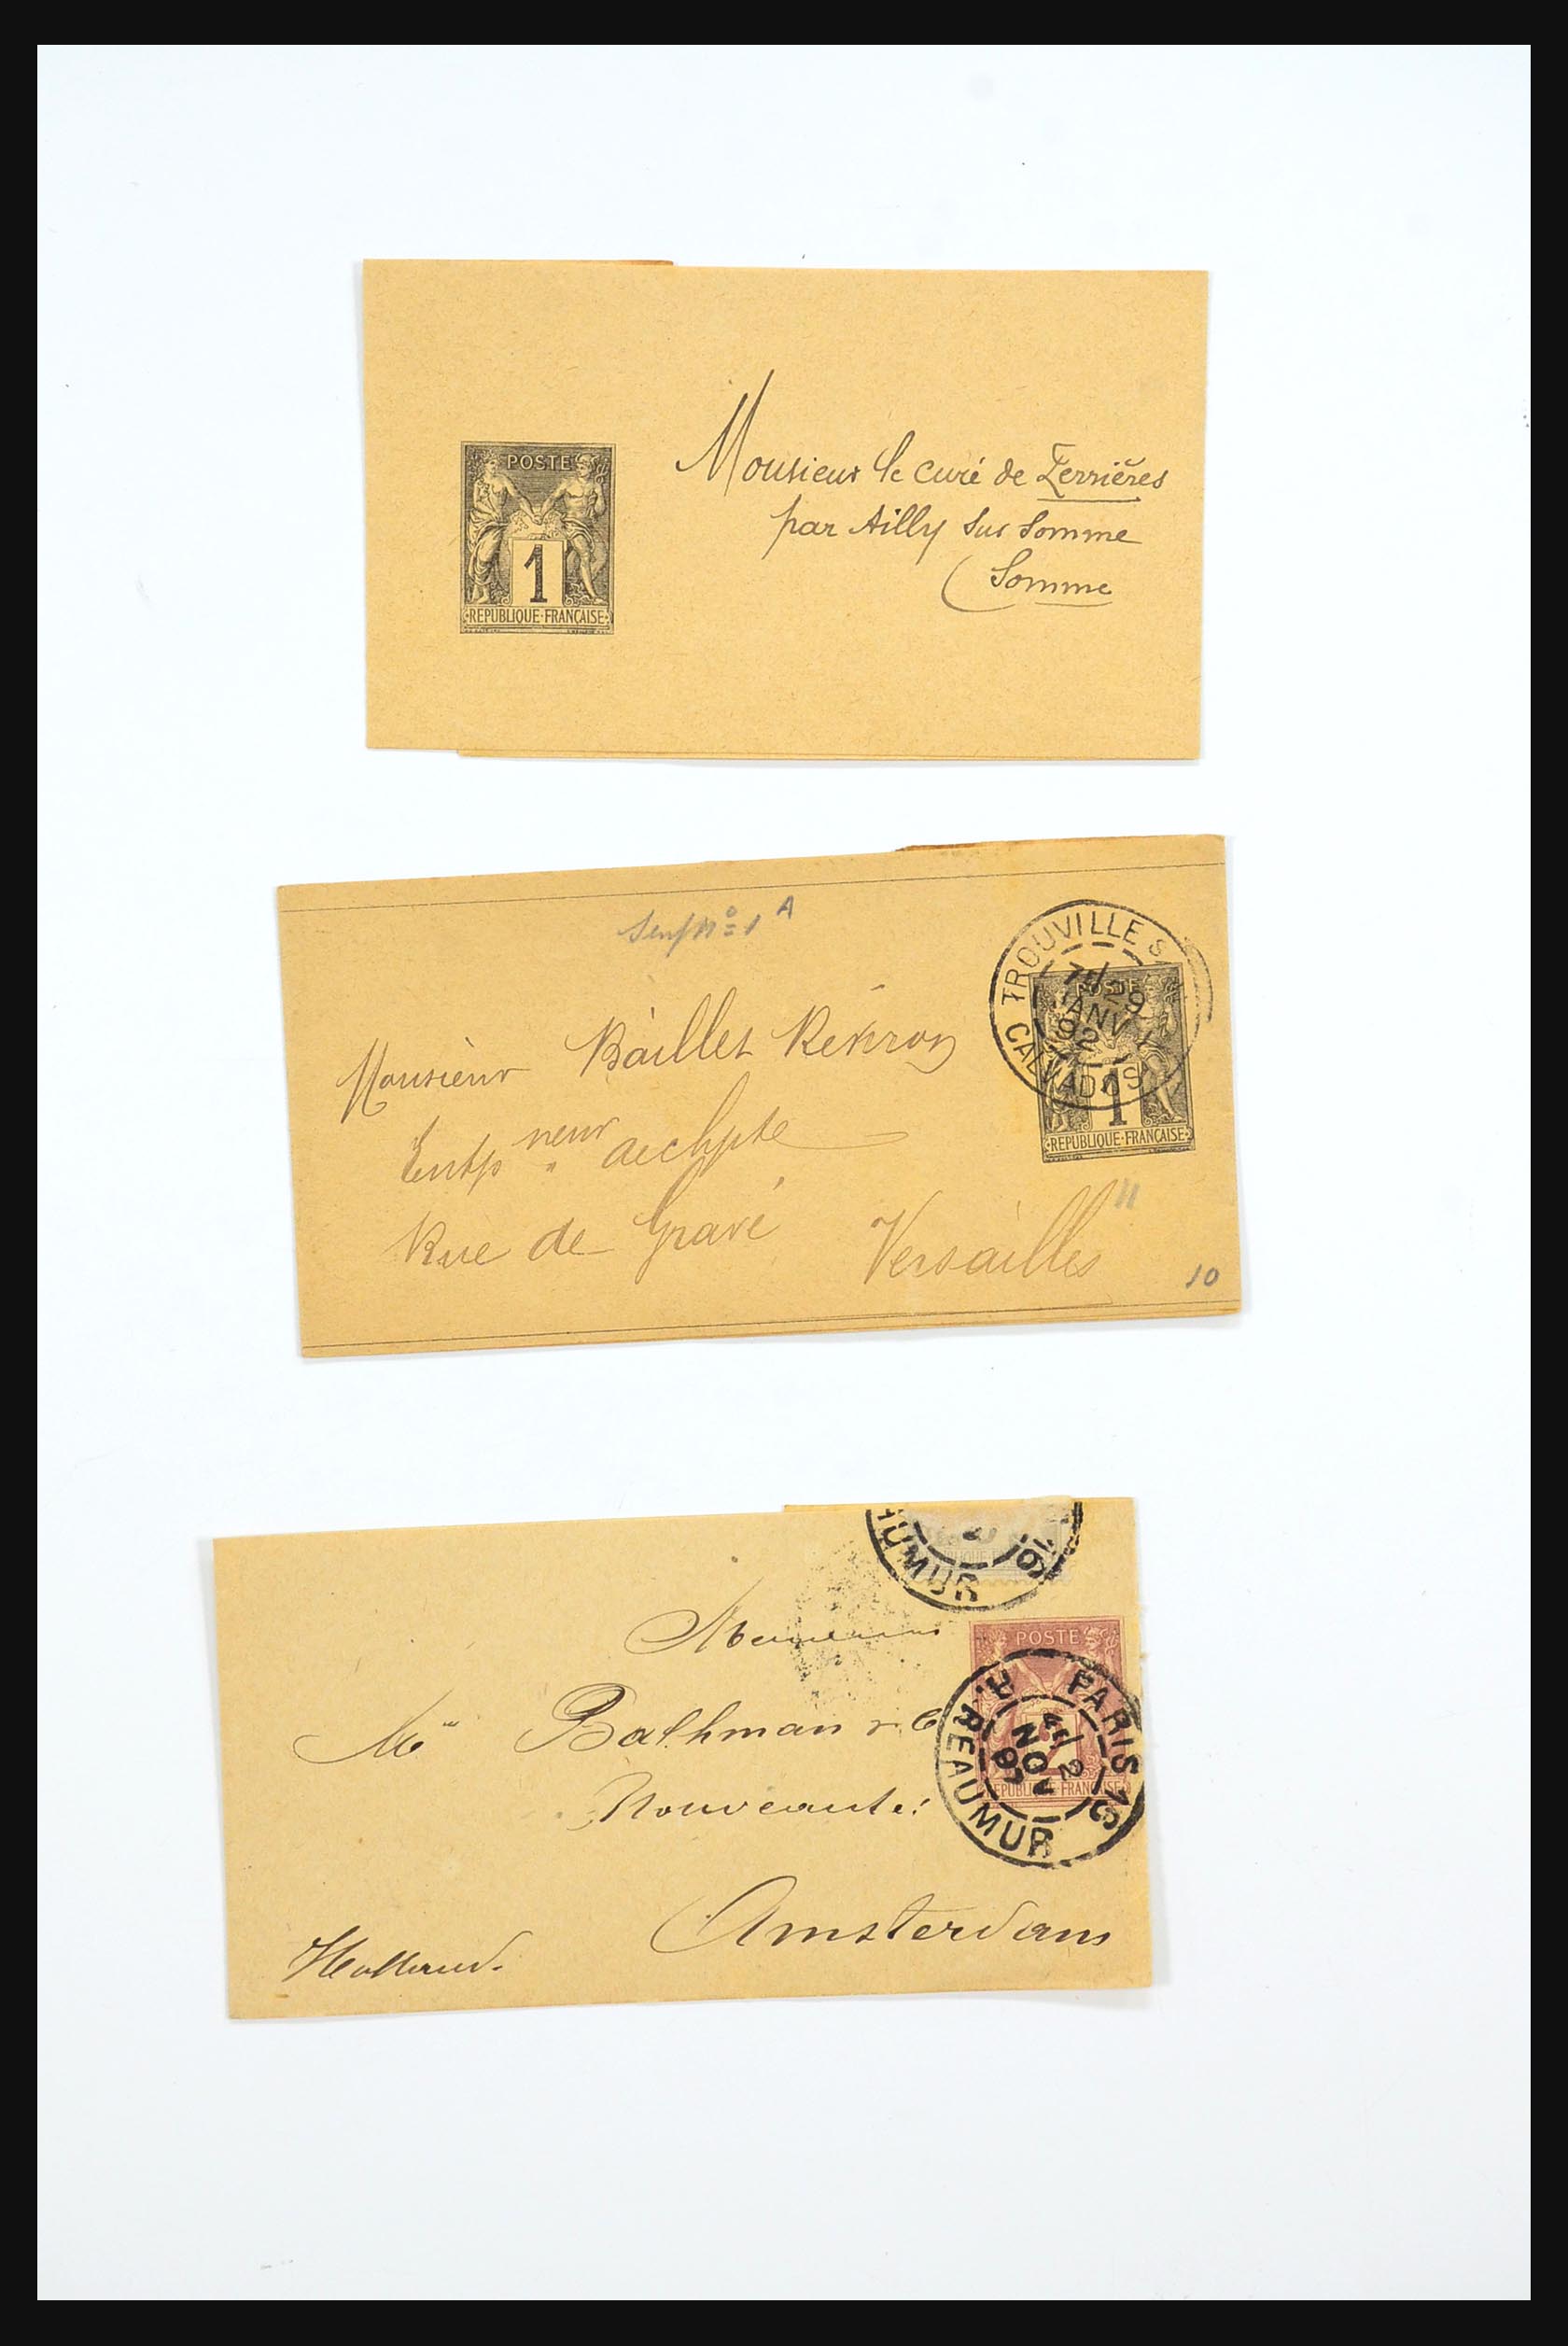 POSTE
1
REPUBLIQUE·FRANÇAISE
Monsieur le curé de Ferrières
par Ailly sur Somme
(Somme
Senf No 1 A
TROUVILLE S
7E/29
JANV
92
CALVADOS
POSTE
1
REPUBLIQUE·FRANÇAISE
Monsieur Baillet
Entp neur
Rue de Gravé Versailles
11
10
UMUR
POSTE
PARIS 15
4E/2
NOV
97
R. REAUMUR
EPUBLIQUE FRANÇAISE
Bathman & C
Nouveautés
Amsterdam
Holland.